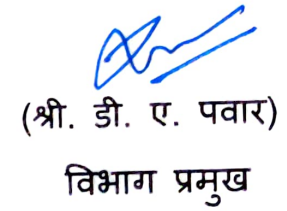 (श्री. डी. ए. पवार)
विभाग प्रमुख